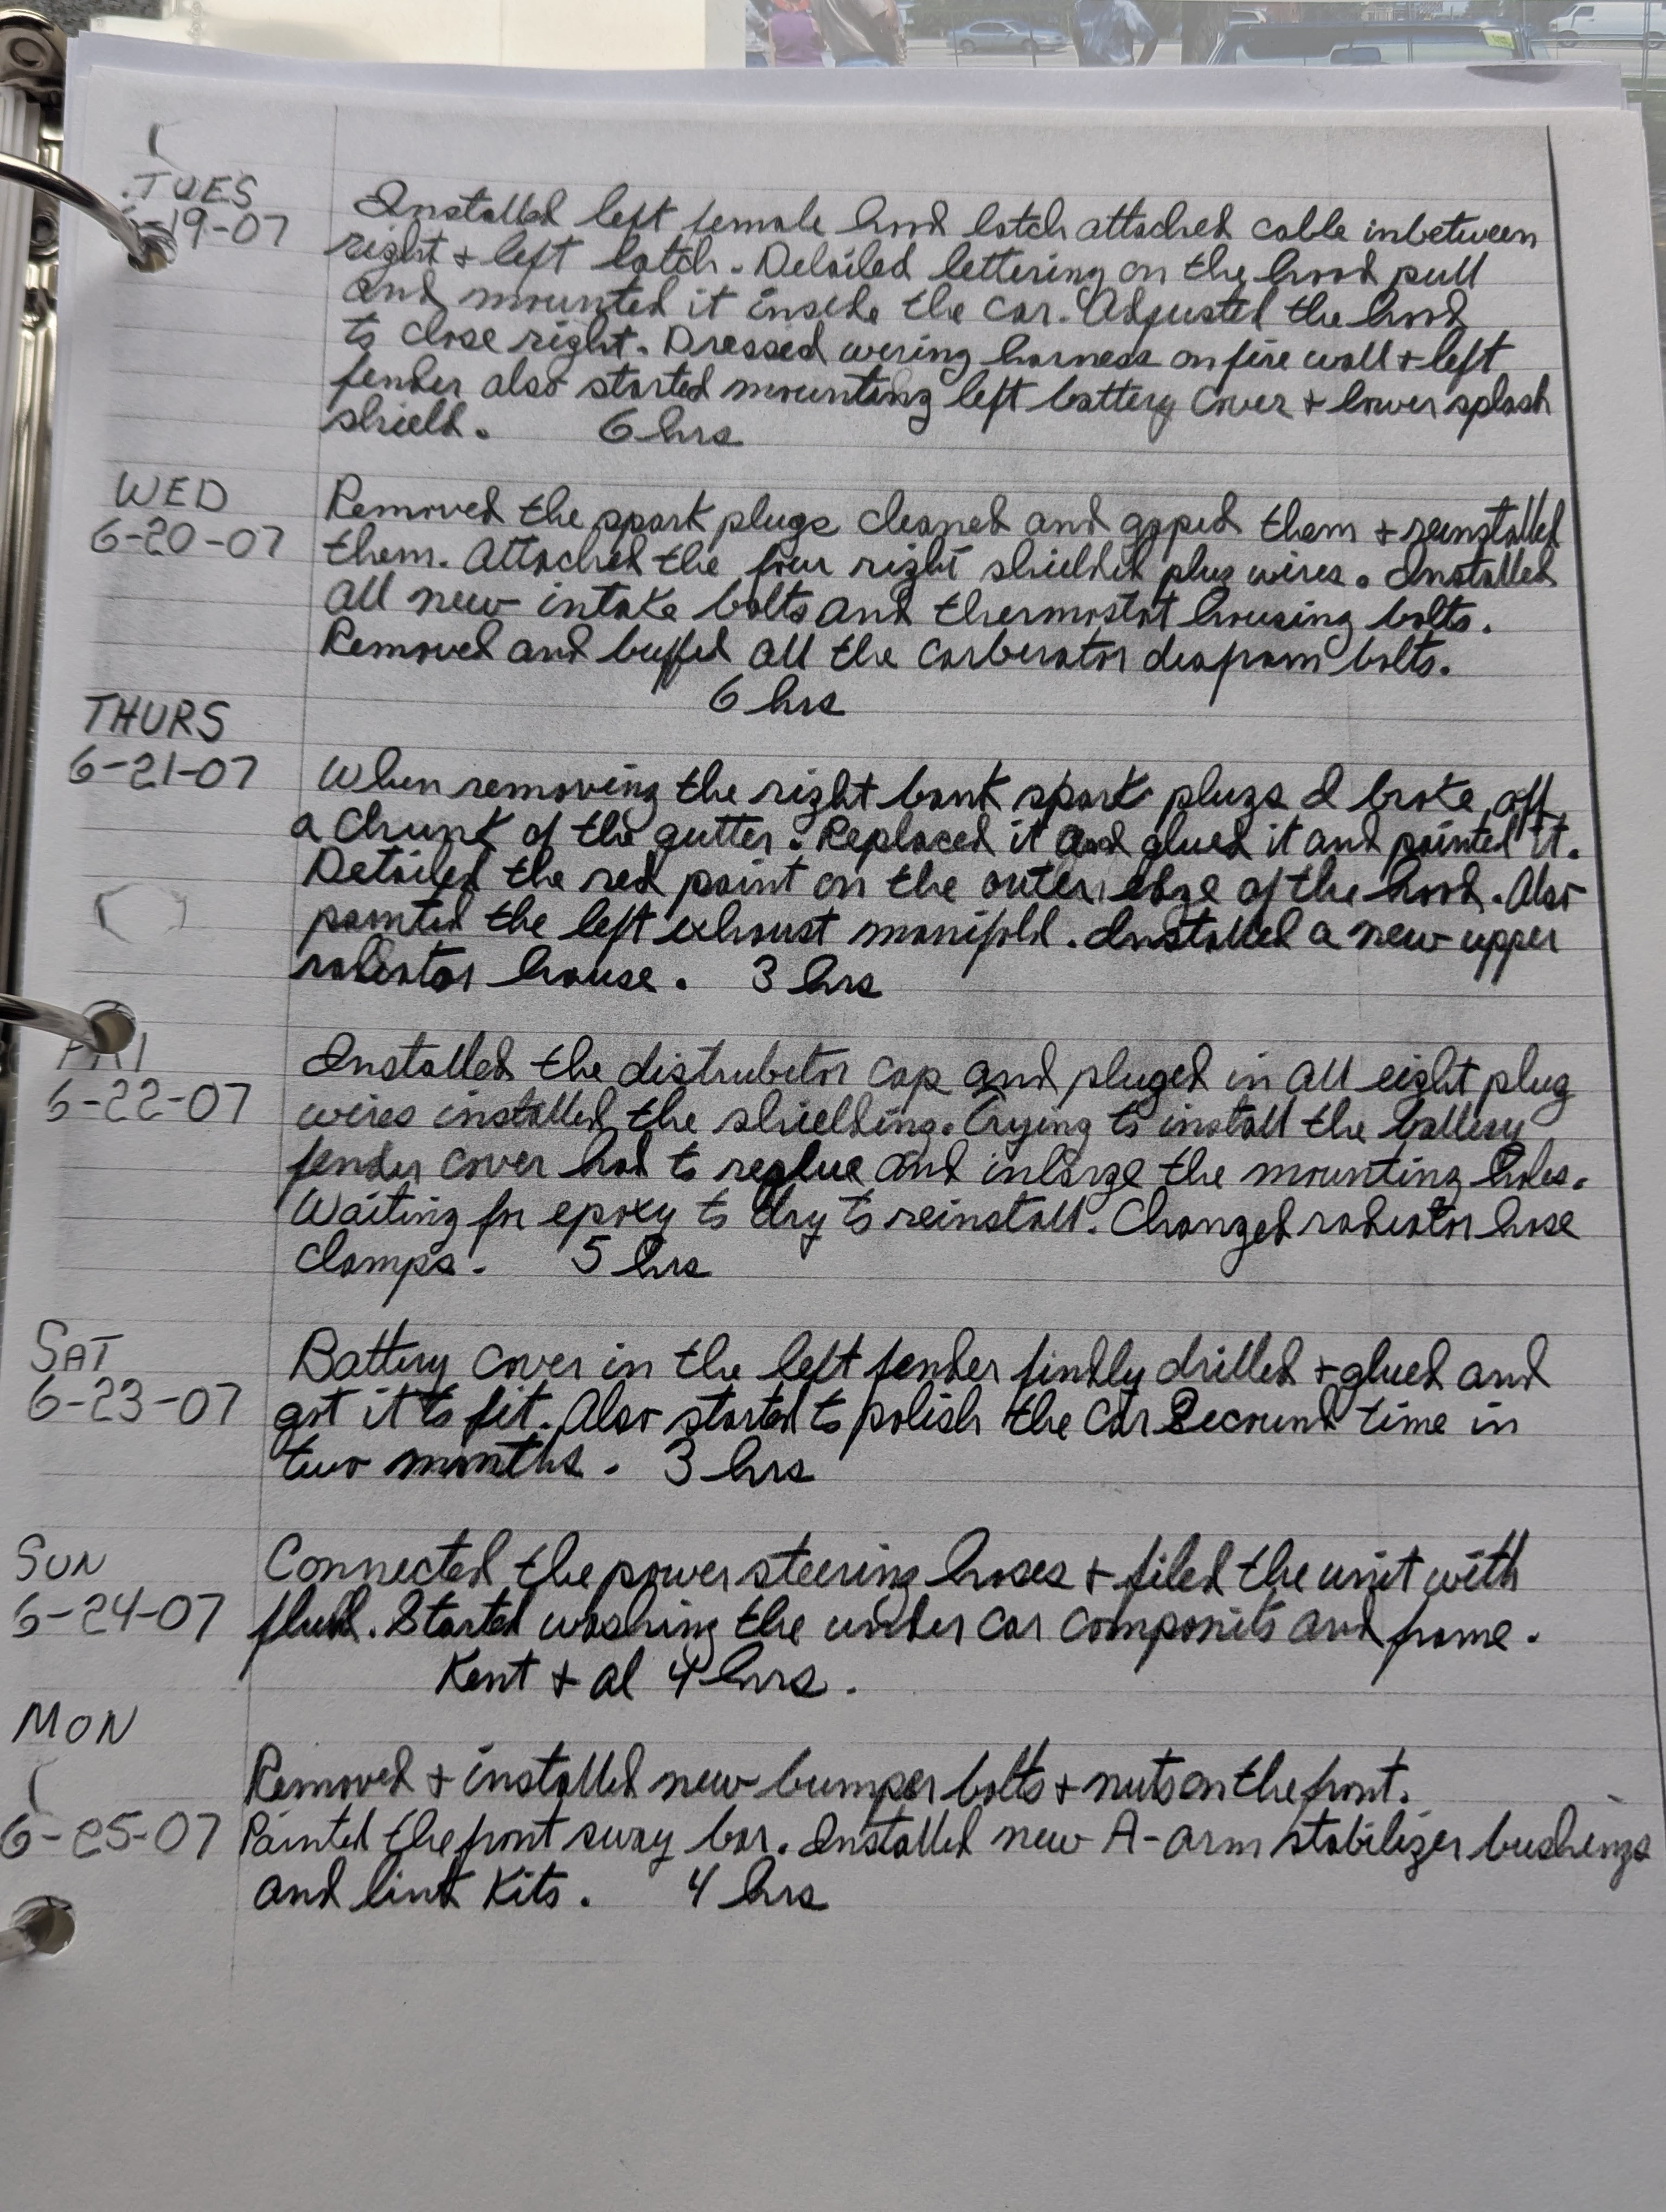 TUES
-19-07
Installed left female hood latch attached cable inbetween
right + left latch. Detailed lettering on the hood pull
and mounted it inside the car. Adjusted the hood
to close right. Dressed wiring harness on fire wall + left
fender also started mounting left battery cover + lower splash
shield. 6 hrs
WED
6-20-07
Removed the spark plugs cleaned and gaped them + reinstalled
them. Attached the four right shielded plug wires. Installed
all new intake bolts and thermostat housing bolts.
Removed and buffed all the carberator diapram bolts.
6 hrs
THURS
6-21-07
When removing the right bank spark plugs I broke off
a chunk of the gutter. Replaced it and glued it and painted it.
Detailed the red paint on the outer edge of the hood. Also
painted the left exhaust manifold. Installed a new upper
radiator house. 3 hrs
FRI
6-22-07
Installed the distrubitor cap and pluged in all eight plug
wires installed the shielding. Trying to install the battery
fender cover had to reglue and inlarge the mounting holes.
Waiting for epoxy to dry to reinstall. Changed radiator hose
clamps. 5 hrs
SAT
6-23-07
Battery cover in the left fender findly drilled + glued and
got it to fit. Also started to polish the car Secound time in
two months. 3 hrs
SUN
6-24-07
Connected the power steering hoses + filed the unit with
fluid. Started washing the under car componits and frame.
Kent + al 4 hrs.
MON
6-25-07
Removed + installed new bumper bolts + nuts on the front.
Painted the front sway bar. Installed new A-arm stabilizer bushings
and link Kits. 4 hrs